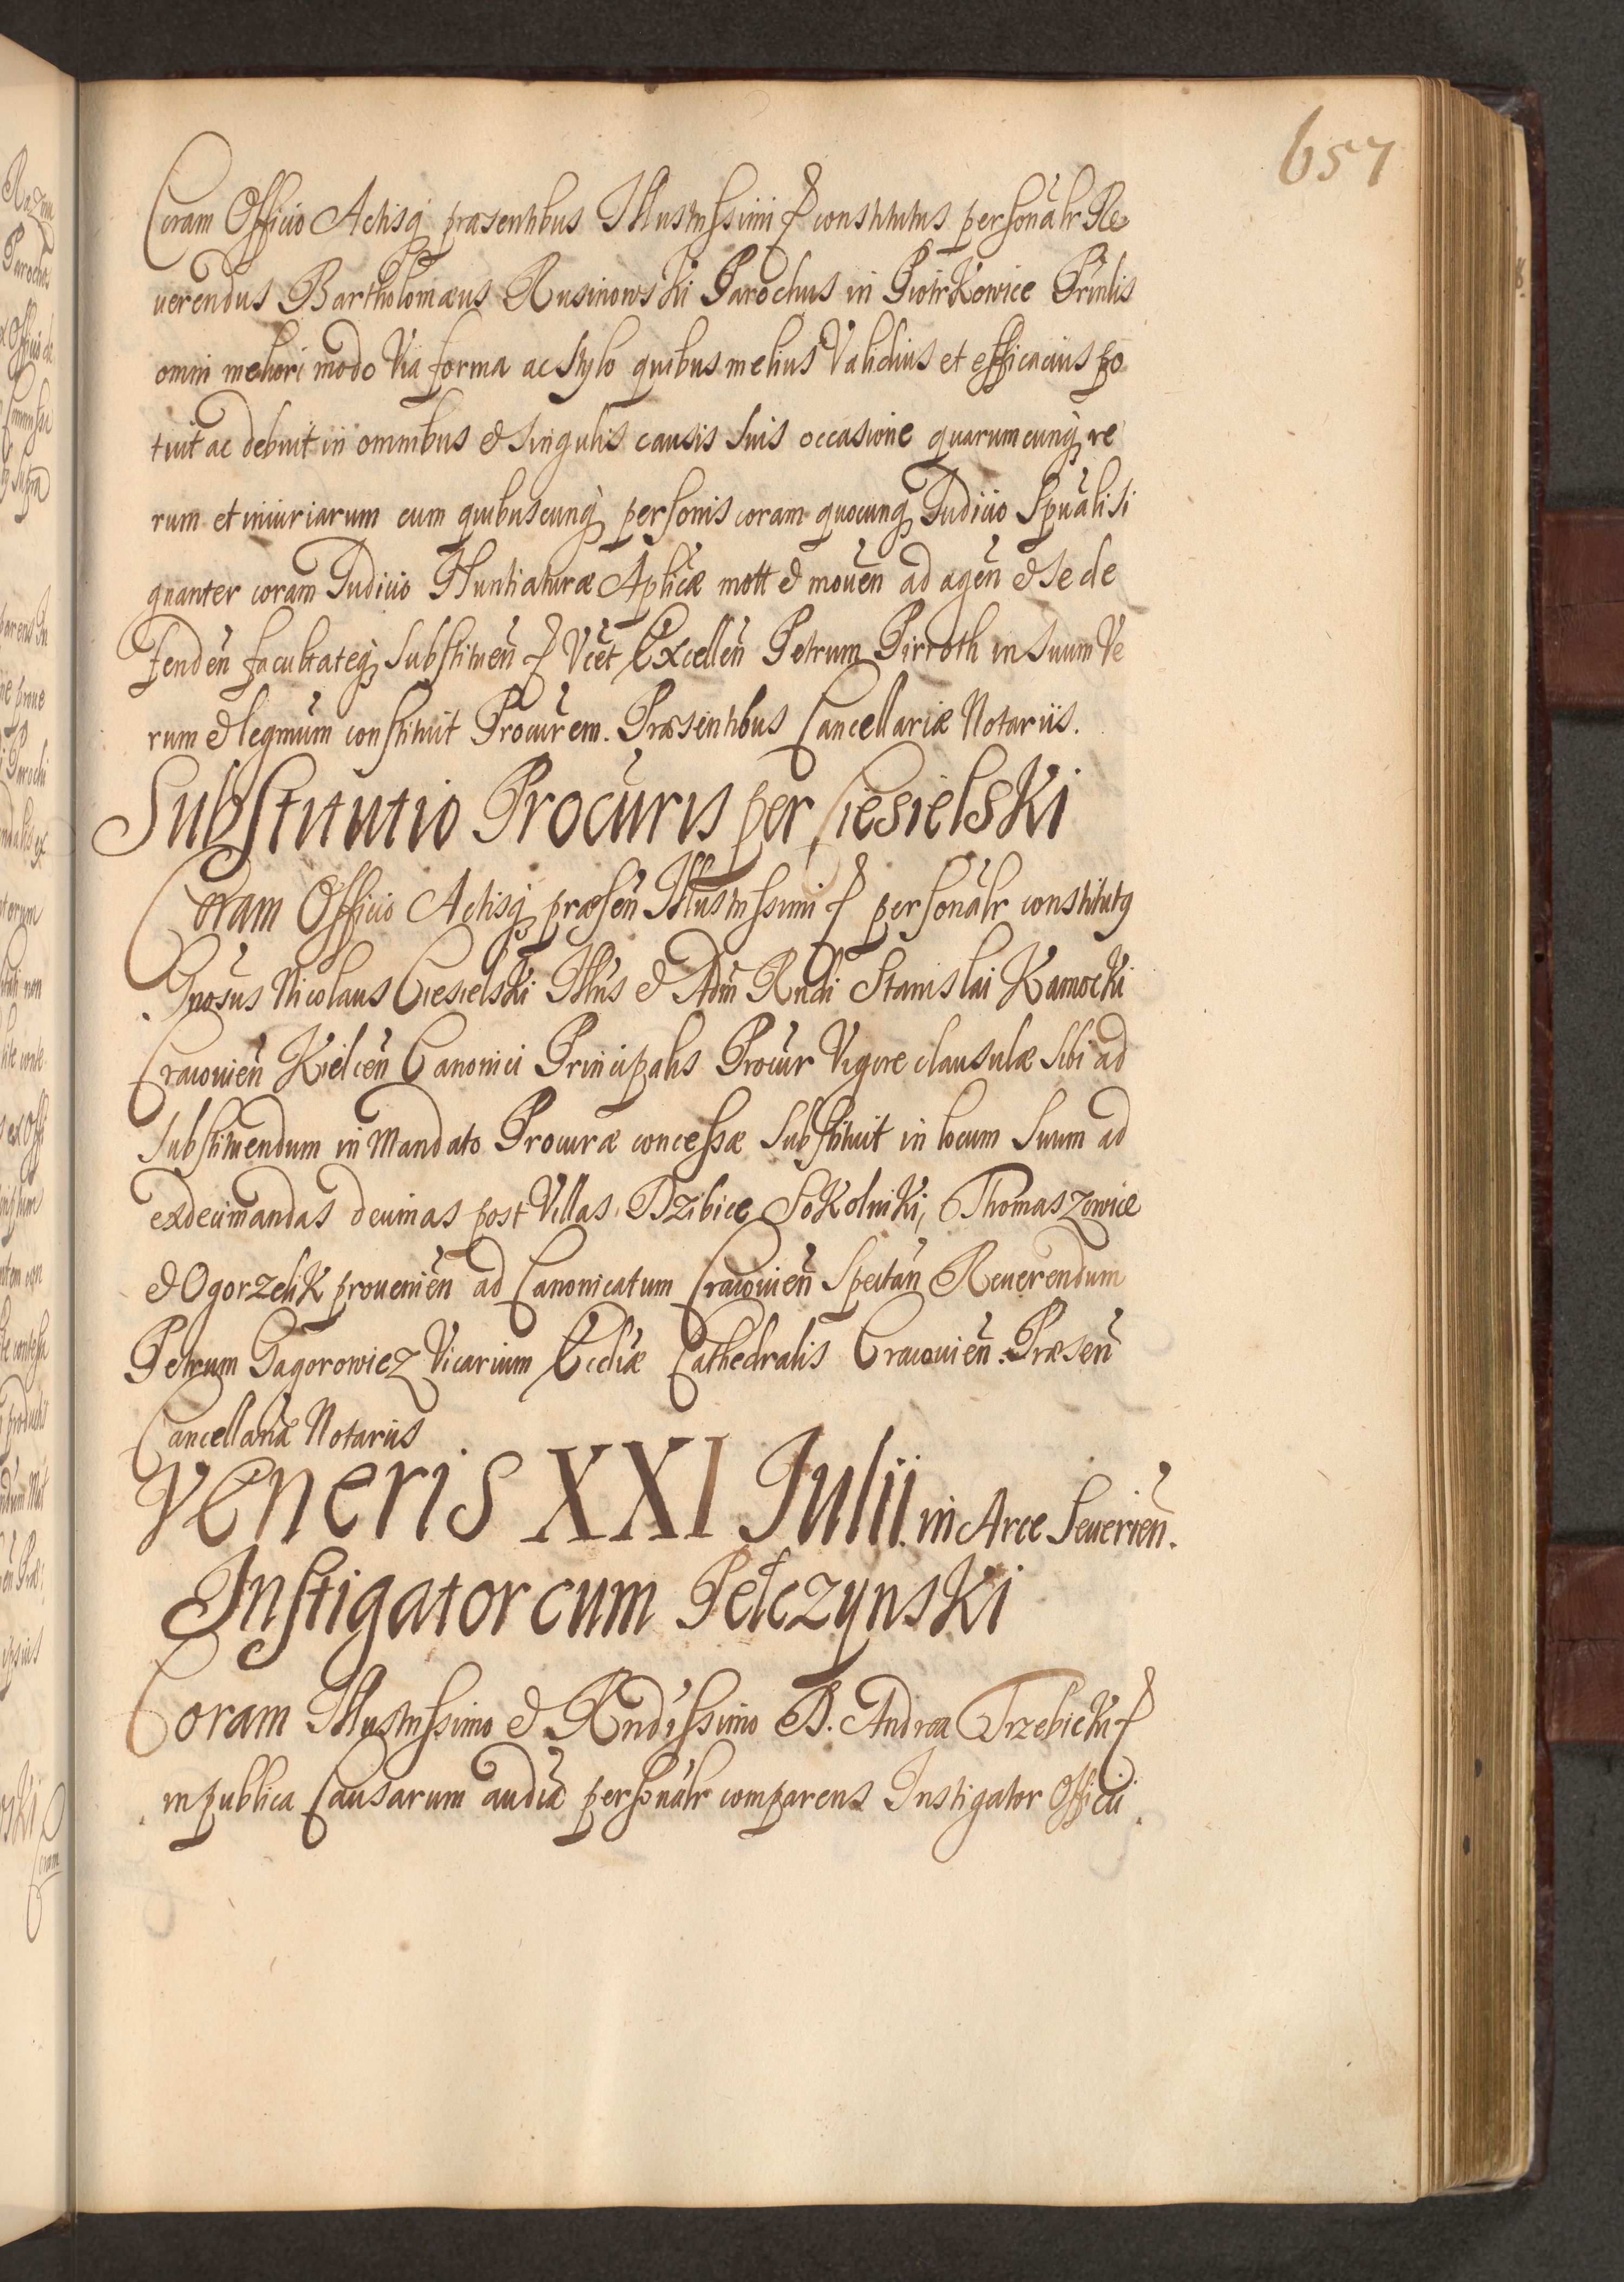 657
Coram Officio Actisq́ præsentibus Illustrissimi etc constitutus personalr Re
uerendus Bartholomæus Rusinowski Parochus in Piotrkowice Prinlis
omni meliori modo Via forma ac stylo quibus melius Validius et efficacius po
tuit ac debuit in omnibus et singulis causis suis occasione quarumcunq́ re
rum et iniuriarum cum quibuscunq́ personis coram quocunq́ Iudicio Spuali si
gnanter coram Iudicio Nuntiaturæ Aplicæ mott et mouen̄ ad agen̄ et se de
fenden̄ facultateq́ substituen̄ etc Vcet Excellen̄ Petrum Pirroth in suum Ve
rum et legmum constituit Procurem. Præsentibus Cancellariæ Notariis.
Substitutio Procuris per Ciesielski
Coram Officio Actisq́ præsen̄ Illustrissimi etc personalr constitutq
Gnosus Nicolaus Ciesielski Illris et Adm Rndi Stanislai Kamocki
Cracouien̄ Kielcen̄ Canonici Principalis Procur Vigore clausulæ sibi ad
substituendum in Mandato Procuræ concessæ substituit in locum suum ad
exdecimandas decimas post Villas Dzibice Sokolniki, Thomaszowice
et Ogorzelik prouenien̄ ad Canonicatum Cracouien̄ Spectan̄ Reuerendum
Petrum Gagorowicz Vicarium Eccliæ Cathedralis Cracouien̄. Præsen̄
Cancellaria Notariis
Veneris XXI Iulii in Arce Seuerien̄.
Instigator cum Pełczynski
Coram Illustrissimo et Rndissimo D. Andrea Trzebicki etc
in publica Causarum audia personalr comparens Instigator Officii